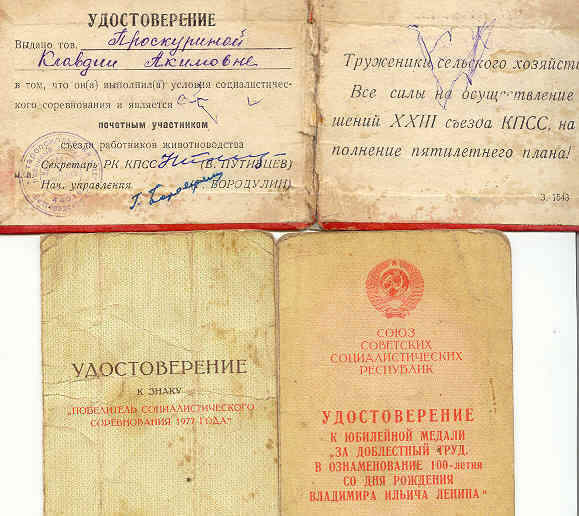 УДОСТОВЕРЕНИЕ
Выдано тов. Проскуриной
Клавдии Акимовне
в том, что он(а) выполнил(а) условия социалистичес-
кого соревнования и является
почетным участником
съезда работников животноводства
Секретарь РК КПСС (В. ПУТИНЦЕВ)
Нач. управления БОРОДУЛИН)
Труженики сельского хозяйст
Все силы на осуществление
шений XXIII съезда КПСС, на
полнение пятилетнего плана!
З. 1543
УДОСТОВЕРЕНИЕ
К ЗНАКУ
„ПОБЕДИТЕЛЬ СОЦИАЛИСТИЧЕСКОГО
СОРЕВНОВАНИЯ 1977 ГОДА"
СОЮЗ
СОВЕТСКИХ
СОЦИАЛИСТИЧЕСКИХ
РЕСПУБЛИК
УДОСТОВЕРЕНИЕ
К ЮБИЛЕЙНОЙ МЕДАЛИ
„ЗА ДОБЛЕСТНЫЙ ТРУД.
В ОЗНАМЕНОВАНИЕ 100-летия
СО ДНЯ РОЖДЕНИЯ
ВЛАДИМИРА ИЛЬИЧА ЛЕНИНА"